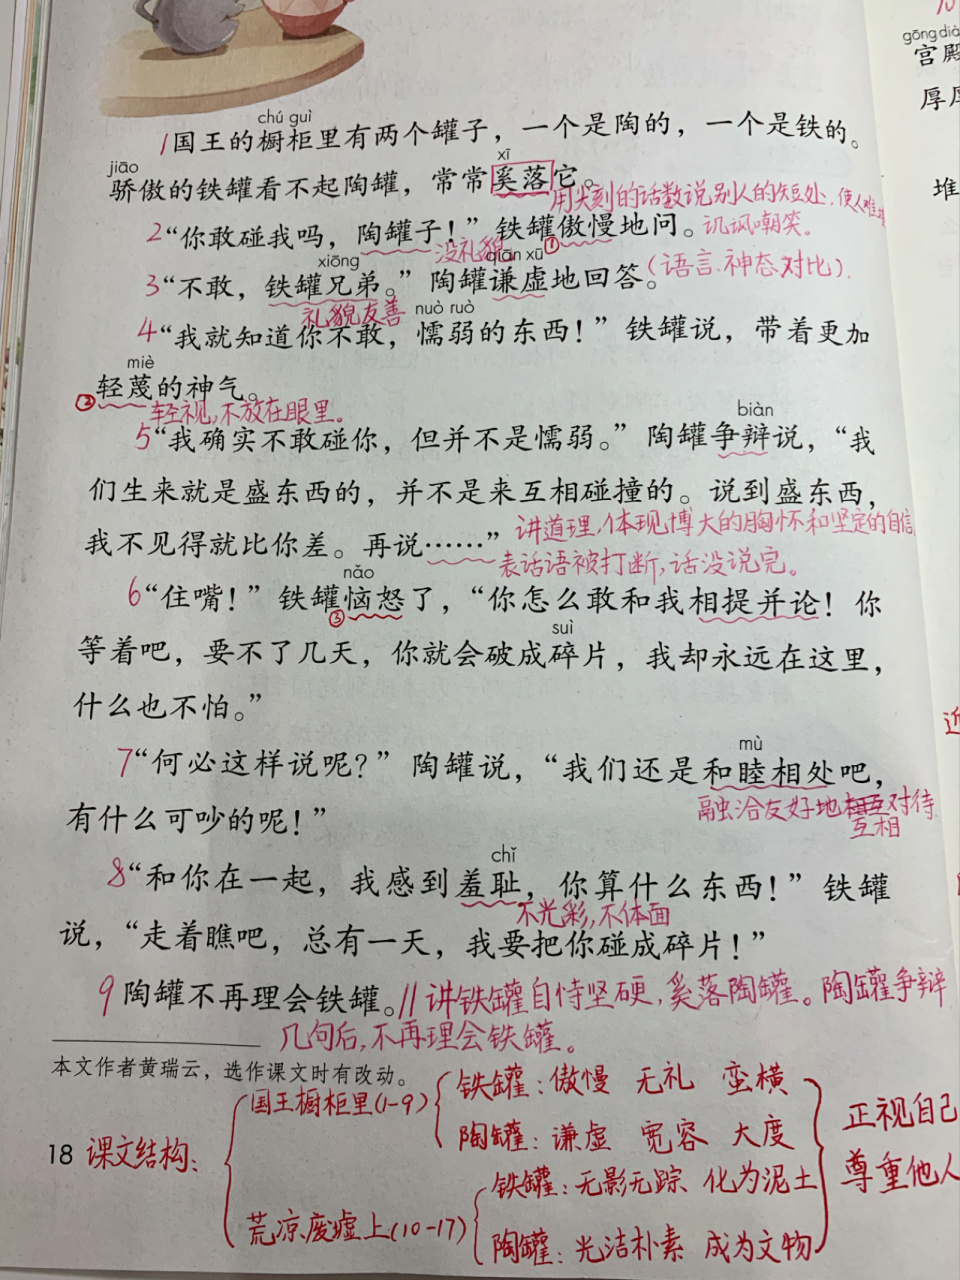 chú guì
1国王的橱柜里有两个罐子，一个是陶的，一个是铁的。
jiāo xī
骄傲的铁罐看不起陶罐，常常奚落它。
用尖刻的话数说别人的短处，使人难堪
2“你敢碰我吗，陶罐子！”铁罐傲慢地问。讥讽嘲笑。
没礼貌 ①
xiōng qiān xū
3“不敢，铁罐兄弟。”陶罐谦虚地回答。（语言、神态对比）.
礼貌友善
nuò ruò
4“我就知道你不敢，懦弱的东西！”铁罐说，带着更加
miè
②轻蔑的神气。
轻视，不放在眼里。
biàn
5“我确实不敢碰你，但并不是懦弱。”陶罐争辩说，“我
们生来就是盛东西的，并不是来互相碰撞的。说到盛东西，
我不见得就比你差。再说……”讲道理，体现博大的胸怀和坚定的自信
表话语被打断，话没说完。
nǎo
6“住嘴！”铁罐恼怒了，“你怎么敢和我相提并论！你
③
suì
等着吧，要不了几天，你就会破成碎片，我却永远在这里，
什么也不怕。”
mù
7“何必这样说呢？”陶罐说，“我们还是和睦相处吧，
融洽友好地互相对待
有什么可吵的呢！”
chǐ
8“和你在一起，我感到羞耻，你算什么东西！”铁罐
不光彩，不体面
说，“走着瞧吧，总有一天，我要把你碰成碎片！”
9陶罐不再理会铁罐。//讲铁罐自恃坚硬，奚落陶罐。陶罐争辩
几句后，不再理会铁罐。
本文作者黄瑞云，选作课文时有改动。
18 课文结构：
国王橱柜里（1-9）
铁罐：傲慢 无礼 蛮横
陶罐：谦虚 宽容 大度
荒凉废墟上（10-17）
铁罐：无影无踪 化为泥土
陶罐：光洁朴素 成为文物
正视自己
尊重他人
gōng diàn
宫殿
厚厚
堆
近